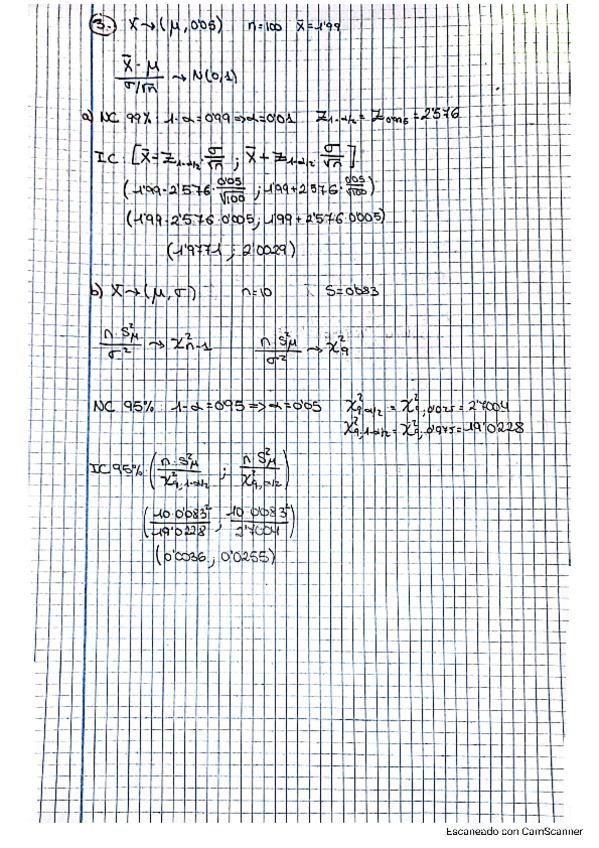 3. X→(μ, 0'05) n=100 x̄=1'99
X̄-μ / σ/√n → N(0,1)
a) NC 99%: 1-α=0'99⇒α=0'01 Z1-α/2 = Z0'995 = 2'576
IC: [X̄-Z1-α/2·σ/√n ; X̄+Z1-α/2·σ/√n]
(1'99-2'576·0'05/√100 ; 1'99+2'576·0'05/√100)
(1'99-2'576·0'005; 1'99+2'576·0'005)
(1'9771 ; 2'0029)
b) X→(μ,σ) n=10 S=0'083
n·S²μ/σ² → χ²n-1 n·S²μ/σ² → χ²9
NC 95%: 1-α=0'95⇒α=0'05 χ²9,α/2 = χ²9,0'025 = 2'7004
χ²9,1-α/2 = χ²9,0'975 = 19'0228
IC 95%: (n·S²μ/χ²9,1-α/2 ; n·S²μ/χ²9,α/2)
(10·0'083²/19'0228 ; 10·0'083²/2'7004)
(0'0036 ; 0'0255)
Escaneado con CamScanner